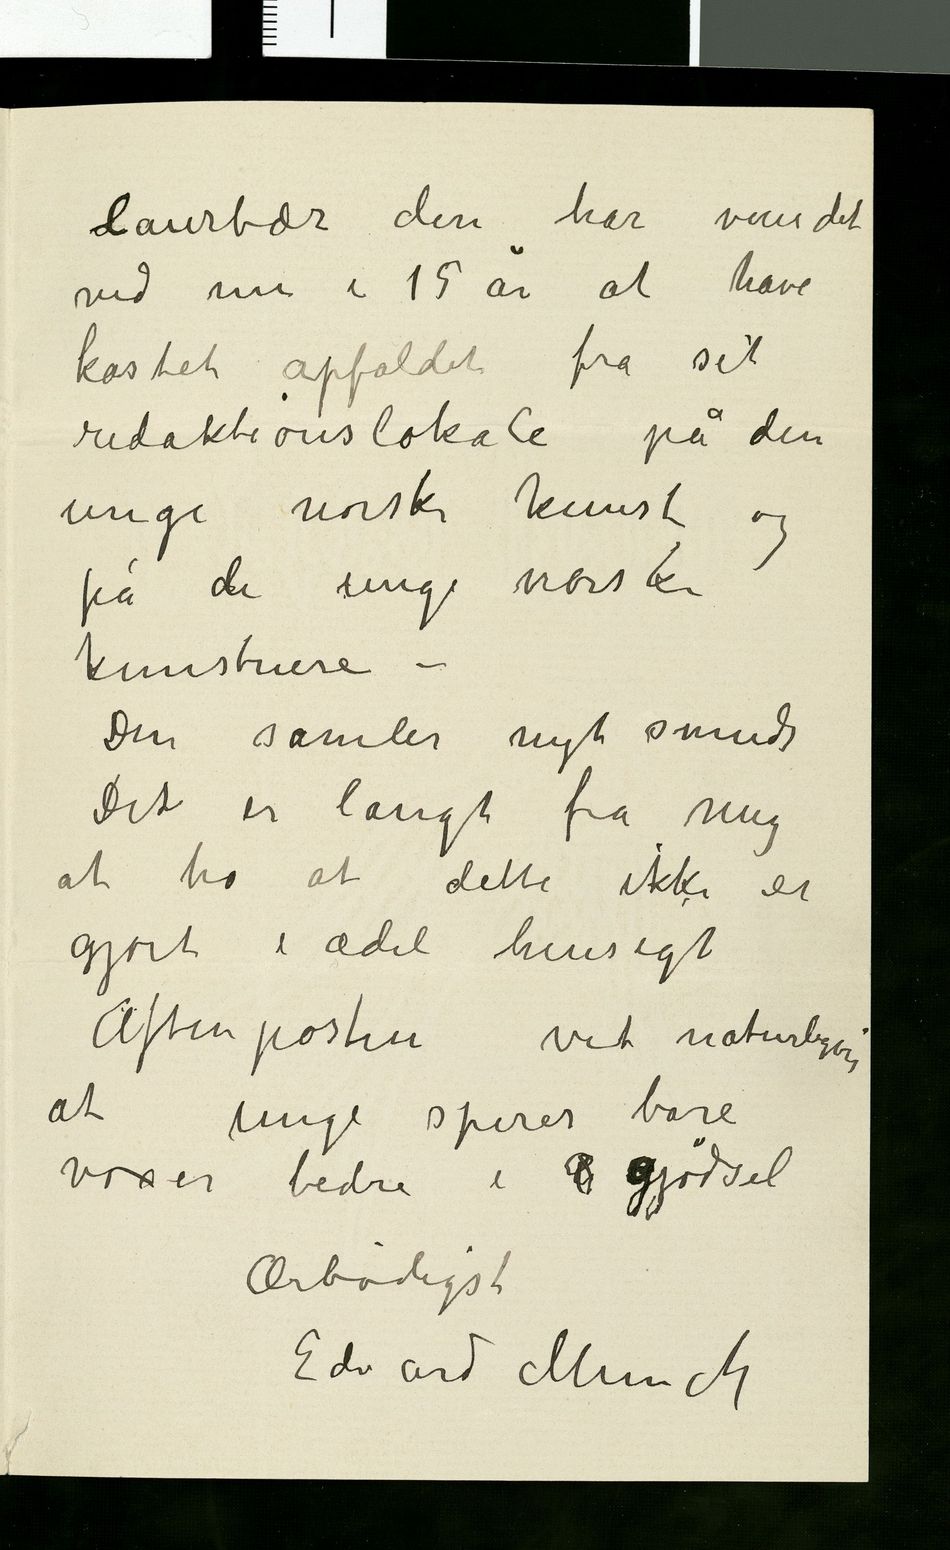 Laurbær den har vundet
ved nu i 15 år at have
kastet apfaldet fra sit
redaktiònslokale på den
unge norske kunst og
på de unge norske
kunstnere –
Den samler nyt smuds
Det er langt fra mig
at tro at dette ikke er
gjort i ædel hensigt
Aftenposten vet naturligvis
at unge spirer bare
voxer bedre i gjödsel
Ærbødigst
Edvard Munch